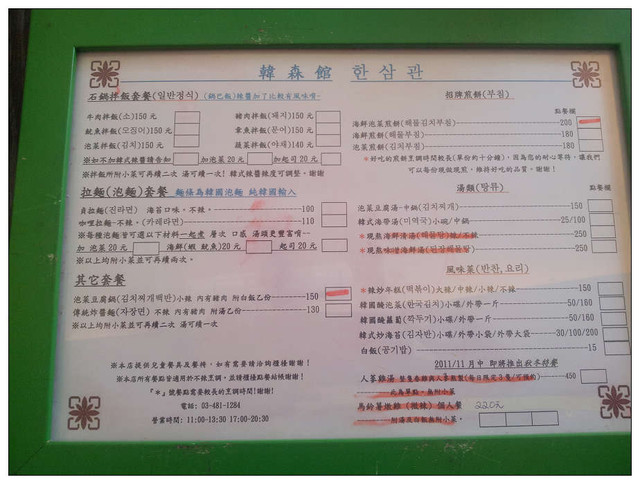 韓森館 한삼관
石鍋拌飯套餐(일반정식)
牛肉拌飯(소)150元
豬肉拌飯(돼지)150元
魷魚拌飯(오징어)150元
章魚拌飯(문어)150元
泡菜拌飯(김치)150元
蔬菜拌飯(야채)140元
※如不加韓式辣醬請告知 加泡菜20元 加起司20元
※拌飯所附小菜可再續二次 湯可續一次! 韓式辣醬辣度可調整。謝謝!
拉麵(泡麵)套餐 麵條為韓國泡麵 純韓國輸入
真拉麵(진라면) 海苔口味。不辣。 100
咖哩拉麵-不辣。(카레라면) 110
※每種泡麵皆可選以下材料一起煮 層次 口感 湯頭更豐富唷~
加 泡菜20元 海鮮(蝦 魷魚)20元 起司20元
※以上均附小菜並可再續兩次。
其它套餐
泡菜豆腐鍋(김치찌개백반)小辣 內有豬肉 附白飯乙份 150
傳統炸醬麵(자장면) 不辣 內有豬肉 附湯乙份 130
※以上均附小菜並可再續二次 湯可續一次
※本店提供兒童餐具及餐椅，如有需要請洽詢櫃檯謝謝!
『*』號餐點需要較長的烹調時間!謝謝!
電話: 03-481-1284
營業時間: 11:00-13:30 17:00-20:30
招牌煎餅(부침)
點餐欄
海鮮泡菜煎餅(해물김치부침) 200
海鮮煎餅(해물부침) 180
泡菜煎餅(김치부침) 180
*好吃的煎餅烹調時間較長(單份約十分鐘)，因為您的耐心等待，讓我們
可以每份現做現煎，維持好吃的品質，謝謝!
湯類(탕류)
點餐欄
泡菜豆腐湯-中鍋(김치찌개) 150
韓式海帶湯(미역국)小碗/中鍋 25/100
*現熬海鮮清湯(해물탕)辣/不辣 250
*現熬味噌海鮮湯(된장해물탕) 250
風味菜(반찬,요리)
*辣炒年糕(떡볶이)大辣/中辣/小辣/不辣 150
韓國醃泡菜(한국김치)小碟/外帶一斤 50/160
韓國醃蘿蔔(깍두기)小碟/外帶一斤 50/160
韓式炒海苔(김자반)小碟/外帶小袋/外帶大袋 30/100/200
白飯(공기밥) 15
2011/11月中 即將推出秋冬特餐
人蔘雞湯 450
此為單點，無附小菜
馬鈴薯燉雞(微辣) 個人餐 220元
附湯及白飯無附小菜